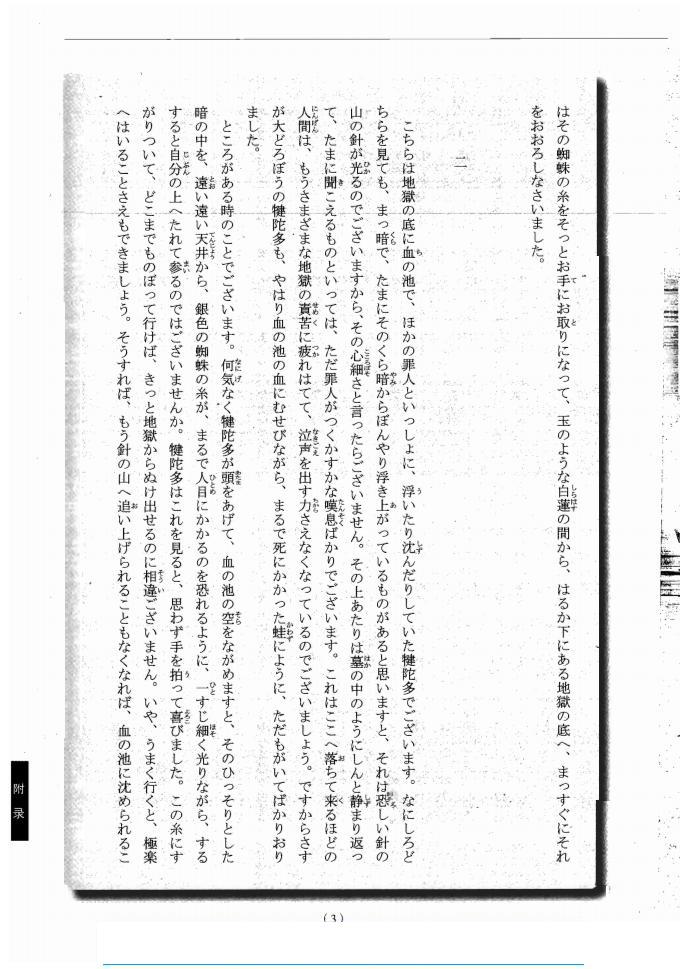 はその蜘蛛の糸をそっとお手にお取りになって、玉のような白蓮の間から、はるか下にある地獄の底へ、まっすぐにそれ
をおおろしなさいました。
二
こちらは地獄の底に血の池で、ほかの罪人といっしょに、浮いたり沈んだりしていた犍陀多でございます。なにしろど
ちらを見ても、まっ暗で、たまにそのくら暗からぼんやり浮き上がっているものがあると思いますと、それは恐しい針の
山の針が光るのでございますから、その心細さと言ったらございません。その上あたりは墓の中のようにしんと静まり返っ
て、たまに聞こえるものといっては、ただ罪人がつくかすかな嘆息ばかりでございます。これはここへ落ちて来るほどの
人間は、もうさまざまな地獄の責苦に疲れはてて、泣声を出す力さえなくなっているのでございましょう。ですからさす
が大どろぼうの犍陀多も、やはり血の池の血にむせびながら、まるで死にかかった蛙にように、ただもがいてばかりおり
ました。
ところがある時のことでございます。何気なく犍陀多が頭をあげて、血の池の空をながめますと、そのひっそりとした
暗の中を、遠い遠い天井から、銀色の蜘蛛の糸が、まるで人目にかかるのを恐れるように、一すじ細く光りながら、する
すると自分の上へたれて参るのではございませんか。犍陀多はこれを見ると、思わず手を拍って喜びました。この糸にす
がりついて、どこまでものぼって行けば、きっと地獄からぬけ出せるのに相違ございません。いや、うまく行くと、極楽
へはいることさえもできましょう。そうすれば、もう針の山へ追い上げられることもなくなれば、血の池に沈められるこ
附录
(3)